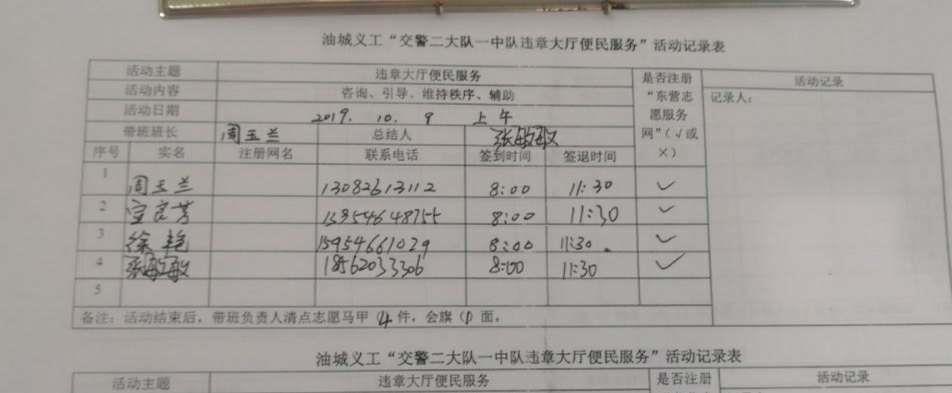 油城义工“交警二大队一中队违章大厅便民服务”活动记录表
活动主题 违章大厅便民服务 是否注册“东营志愿服务网”(√或×) 活动记录
活动内容 咨询、引导、维持秩序、辅助 记录人:
活动日期 2019. 10. 9 上午
带班班长 周玉兰 总结人 张敏敏
序号 实名 注册网名 联系电话 签到时间 签退时间
1 周玉兰 13082613112 8:00 11:30 √
2 良芳 8:00 11:30 √
3 徐艳 15954661029 8:00 11:30. √
4 张敏敏 18562033306 8:00 11:30 √
5
备注:活动结束后,带班负责人清点志愿马甲 4 件,会旗 (1) 面。
油城义工“交警二大队一中队违章大厅便民服务”活动记录表
活动主题 违章大厅便民服务 是否注册 活动记录